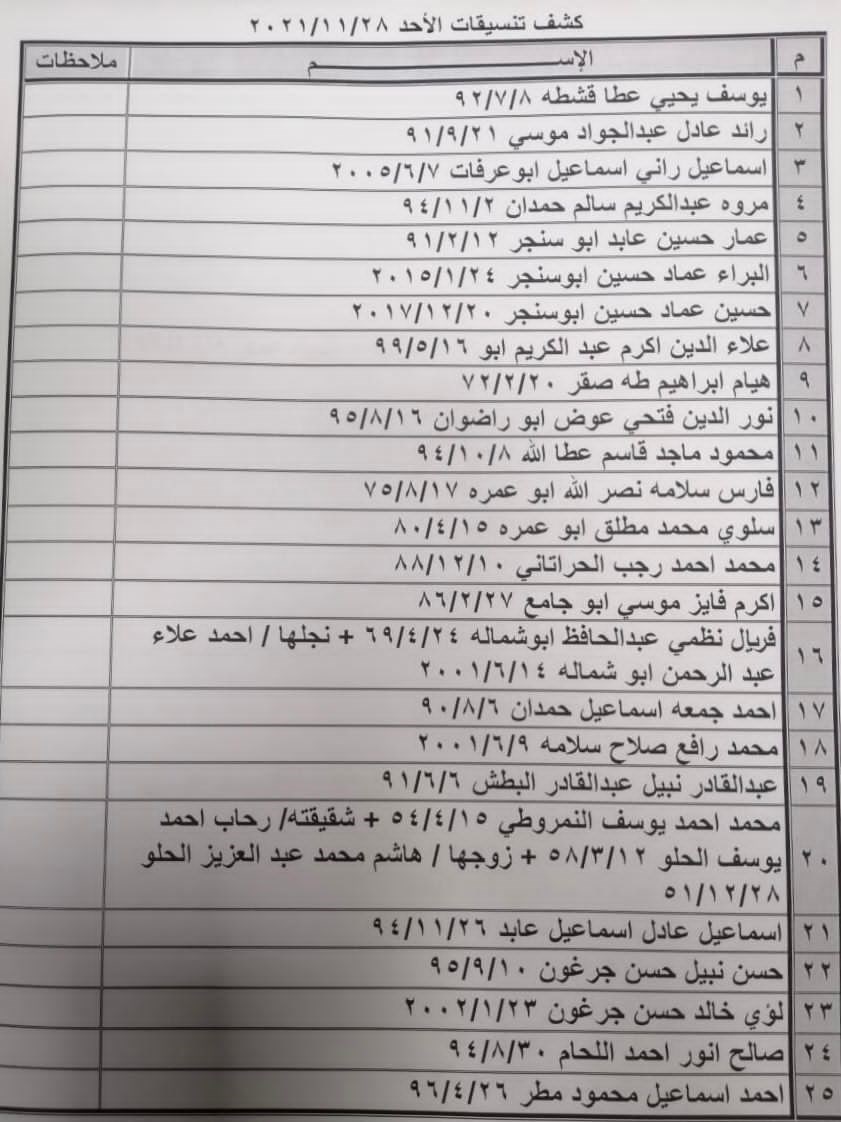 كشف تنسيقات الأحد ٢٠٢١/١١/٢٨
م الإســــــــــــــم ملاحظات
١ يوسف يحيي عطا قشطه ٩٢/٧/٨
٢ رائد عادل عبدالجواد موسي ٩١/٩/٢١
٣ اسماعيل راني اسماعيل ابوعرفات ٢٠٠٥/٦/٧
٤ مروه عبدالكريم سالم حمدان ٩٤/١١/٢
٥ عمار حسين عابد ابو سنجر ٩١/٢/١٢
٦ البراء عماد حسين ابوسنجر ٢٠١٥/١/٢٤
٧ حسين عماد حسين ابوسنجر ٢٠١٧/١٢/٢٠
٨ علاء الدين اكرم عبد الكريم ابو ٩٩/٥/١٦
٩ هيام ابراهيم طه صقر ٧٢/٢/٢٠
١٠ نور الدين فتحي عوض ابو راضوان ٩٥/٨/١٦
١١ محمود ماجد قاسم عطا الله ٩٤/١٠/٨
١٢ فارس سلامه نصر الله ابو عمره ٧٥/٨/١٧
١٣ سلوي محمد مطلق ابو عمره ٨٠/٤/١٥
١٤ محمد احمد رجب الحراتاني ٨٨/١٢/١٠
١٥ اكرم فايز موسي ابو جامع ٨٦/٢/٢٧
١٦ فريال نظمي عبدالحافظ ابوشماله ٦٩/٤/٢٤ + نجلها / احمد علاء
عبد الرحمن ابو شماله ٢٠٠١/٦/١٤
١٧ احمد جمعه اسماعيل حمدان ٩٠/٨/٦
١٨ محمد رافع صلاح سلامه ٢٠٠١/٦/٩
١٩ عبدالقادر نبيل عبدالقادر البطش ٩١/٦/٦
٢٠ محمد احمد يوسف النمروطي ٥٤/٤/١٥ + شقيقته/ رحاب احمد
يوسف الحلو ٥٨/٣/١٢ + زوجها / هاشم محمد عبد العزيز الحلو
٥١/١٢/٢٨
٢١ اسماعيل عادل اسماعيل عابد ٩٤/١١/٢٦
٢٢ حسن نبيل حسن جرغون ٩٥/٩/١٠
٢٣ لؤي خالد حسن جرغون ٢٠٠٢/١/٢٣
٢٤ صالح انور احمد اللحام ٩٤/٨/٣٠
٢٥ احمد اسماعيل محمود مطر ٩٦/٤/٢٦